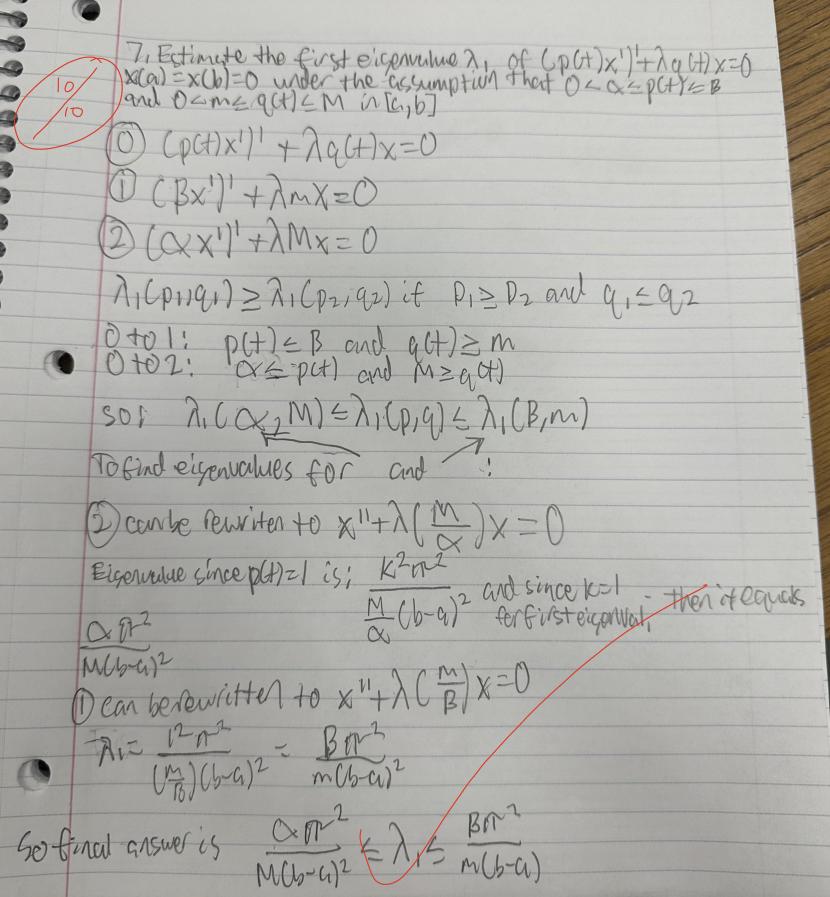 7. Estimate the first eigenvalue λ₁ of (p(t)x')' + λq(t)x=0
x(a)=x(b)=0 under the assumption that 0<α≤p(t)≤B
and 0<m≤q(t)≤M in [a,b]
10/10
⓪ (p(t)x')' + λq(t)x=0
① (Bx')' + λmx=0
② (αx')' + λMx=0
λ₁(p₁,q₁) ≥ λ₁(p₂,q₂) if p₁≥p₂ and q₁≤q₂
0 to 1: p(t)≤B and q(t)≥m
0 to 2: α≤p(t) and M≥q(t)
so: λ₁(α,M)≤λ₁(p,q)≤λ₁(B,m)
To find eigenvalues for and :
② can be rewriten to x''+λ(M/α)x=0
Eigenvalue since p(t)=1 is: k²π²/(M/α (b-a)²) and since k=1 for first eigenval, then it equals
απ²/M(b-a)²
① can be rewritten to x''+λ(m/B)x=0
λ₁= 1²π²/((m/B)(b-a)²) = Bπ²/m(b-a)²
So final answer is απ²/M(b-a)² ≤ λ₁ ≤ Bπ²/m(b-a)